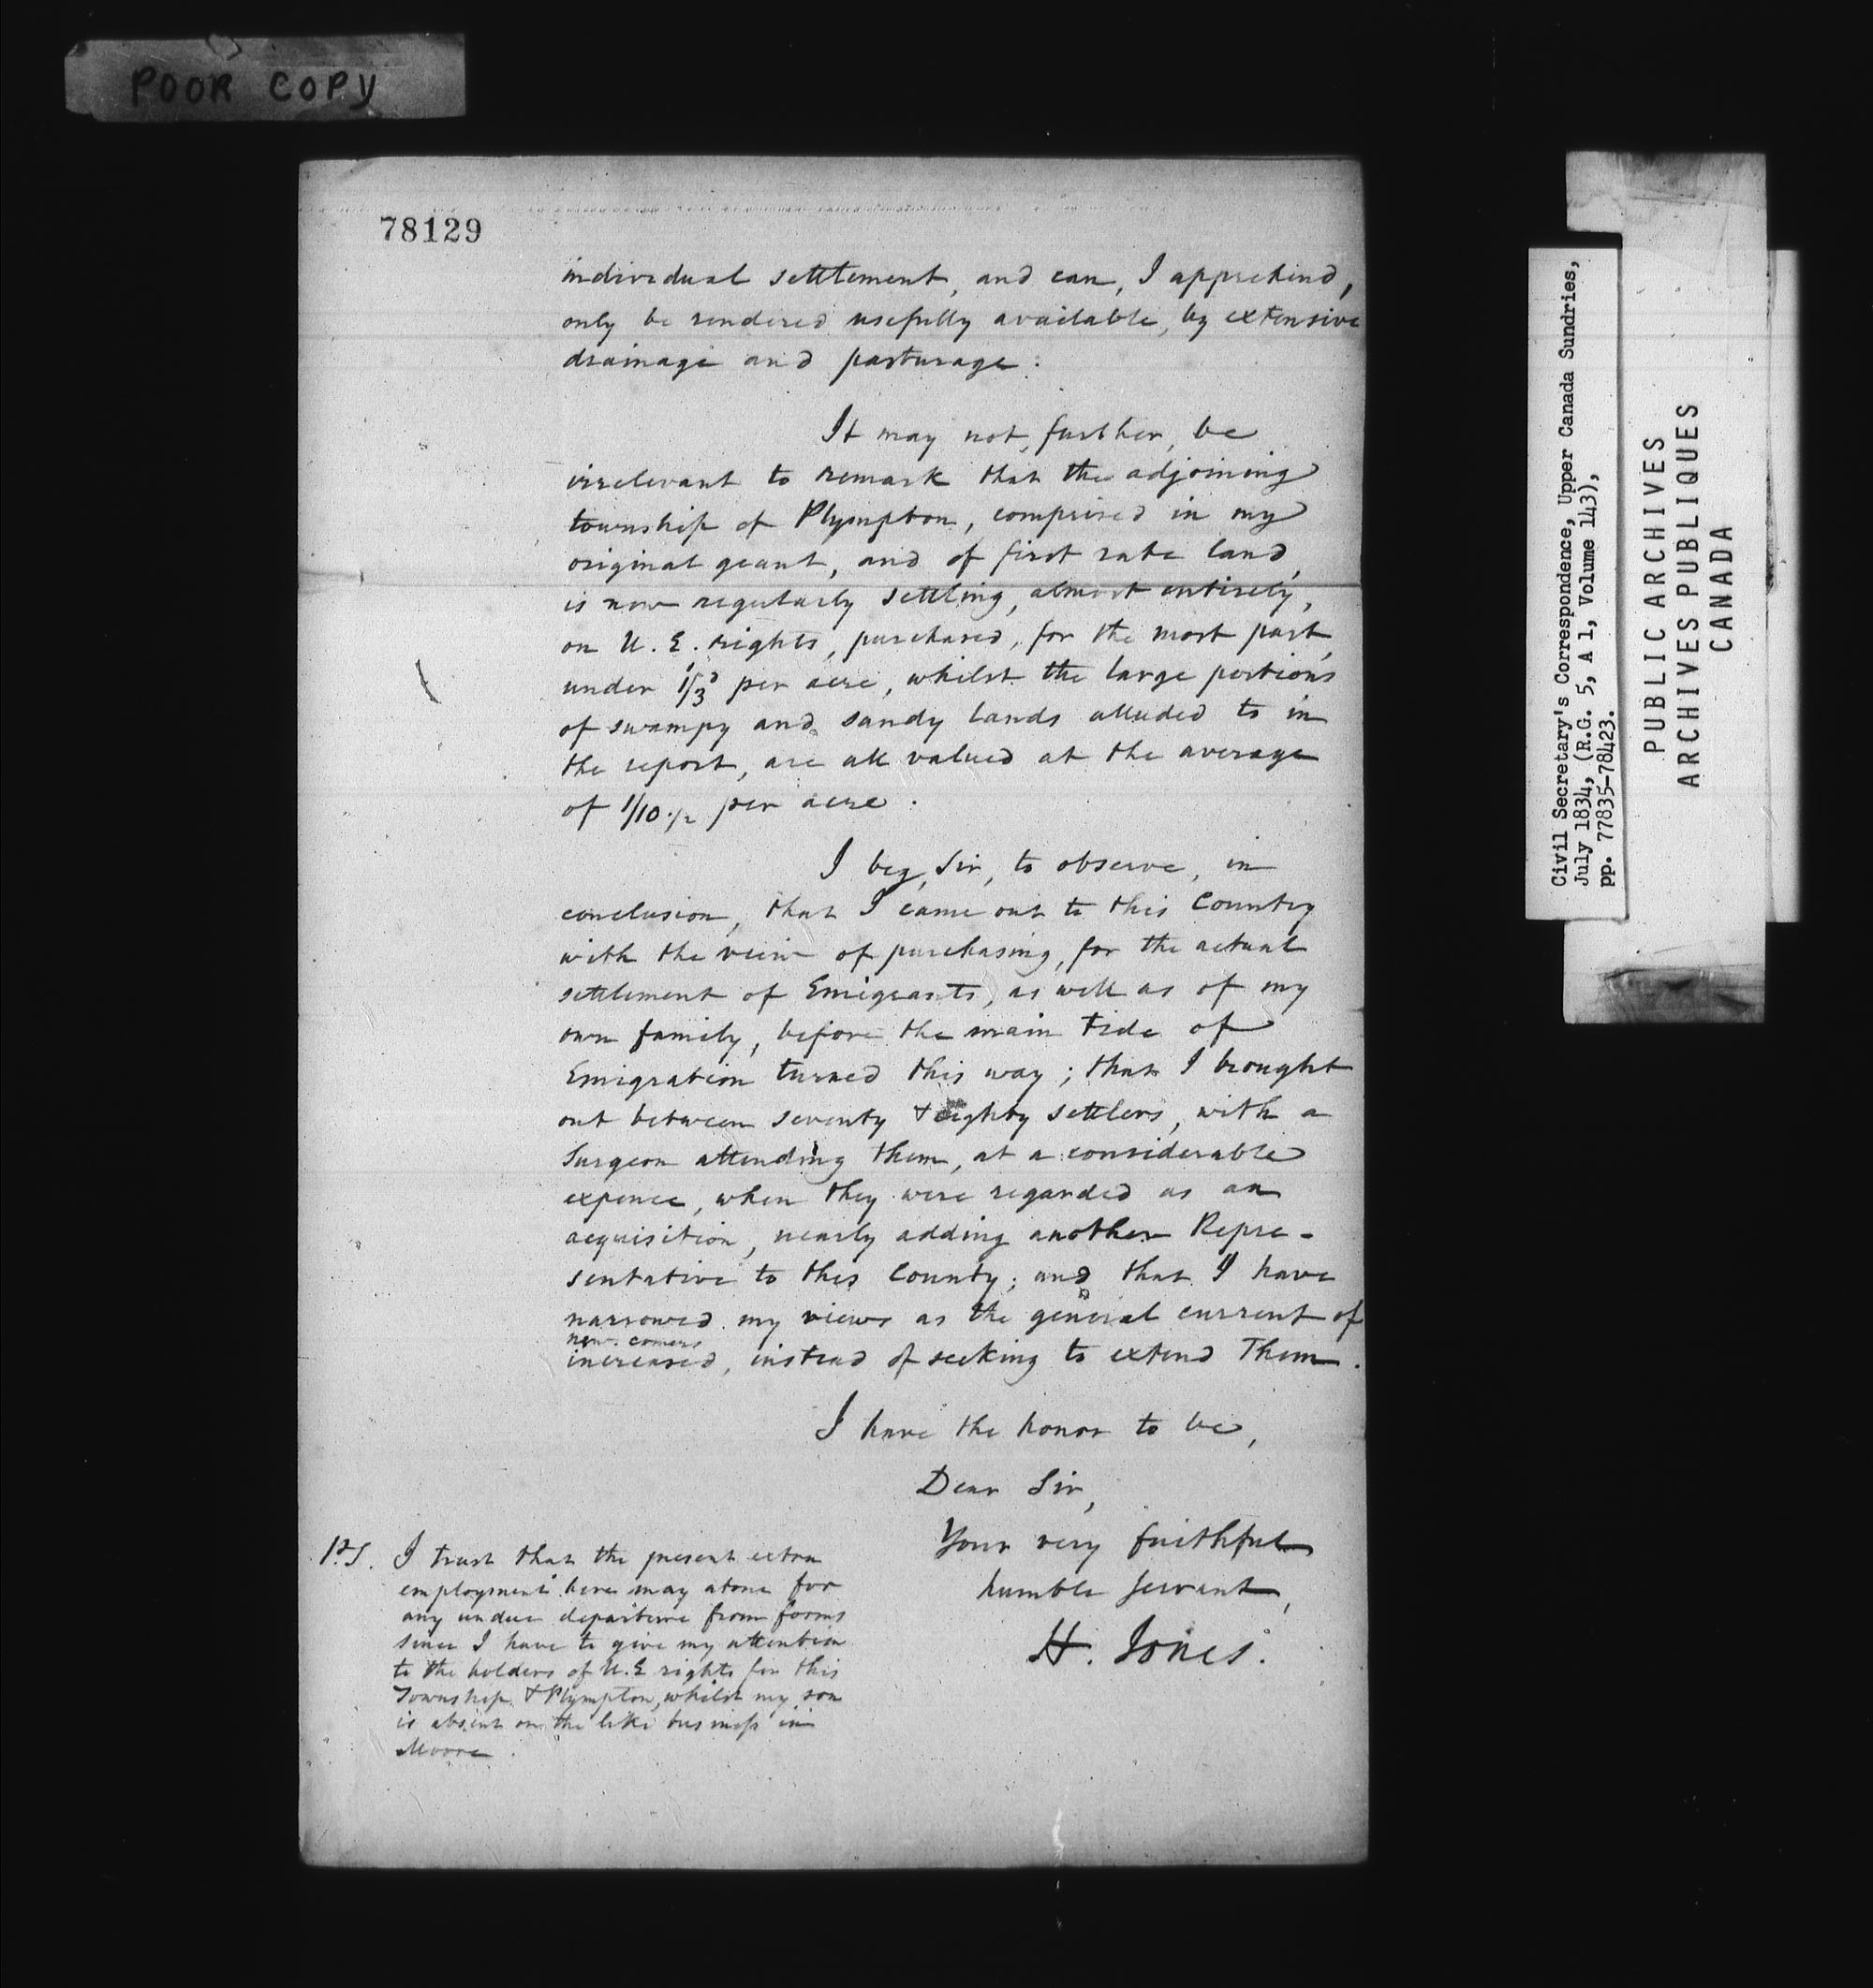 POOR COPY
78129
individual settlement, and can, I apprehend,
only be rendered usefully available, by extensive
drainage and pasturage.
It may not, further, be
irrelevant to remark that the adjoining
township of Plympton, comprised in my
original grant, and of first rate land,
is now regularly settling, almost entirely,
on U. E. rights, purchased, for the most part,
under 1/3d per acre, whilst the large portions
of swampy and sandy lands alluded to in
the report, are all valued at the average
of 1/10 1/2 per acre.
I beg, Sir, to observe, in
conclusion, that I came out to this Country
with the view of purchasing, for the actual
settlement of Emigrants, as well as of my
own family, before the main tide of
Emigration turned this way; that I brought
out between seventy & eighty settlers, with a
Surgeon attending them, at a considerable
expence, when they were regarded as an
acquisition, nearly adding another Repre-
sentative to this County; and that I have
narrowed my views as the general current of
new comers
increased, instead of seeking to extend Them.
I have the honor to be,
Dear Sir,
Your very faithful
humble servant,
H. Jones.
P.S. I trust that the present extra
employment here may atone for
any undue departure from forms
since I have to give my attention
to the holders of U.E rights for this
Township & Plympton, whilst my son
is absent on the like business in
Moore.
Civil Secretary's Correspondence, Upper Canada Sundries,
July 1834, (R.G. 5, A 1, Volume 143),
pp. 77835-78423.
PUBLIC ARCHIVES
ARCHIVES PUBLIQUES
CANADA